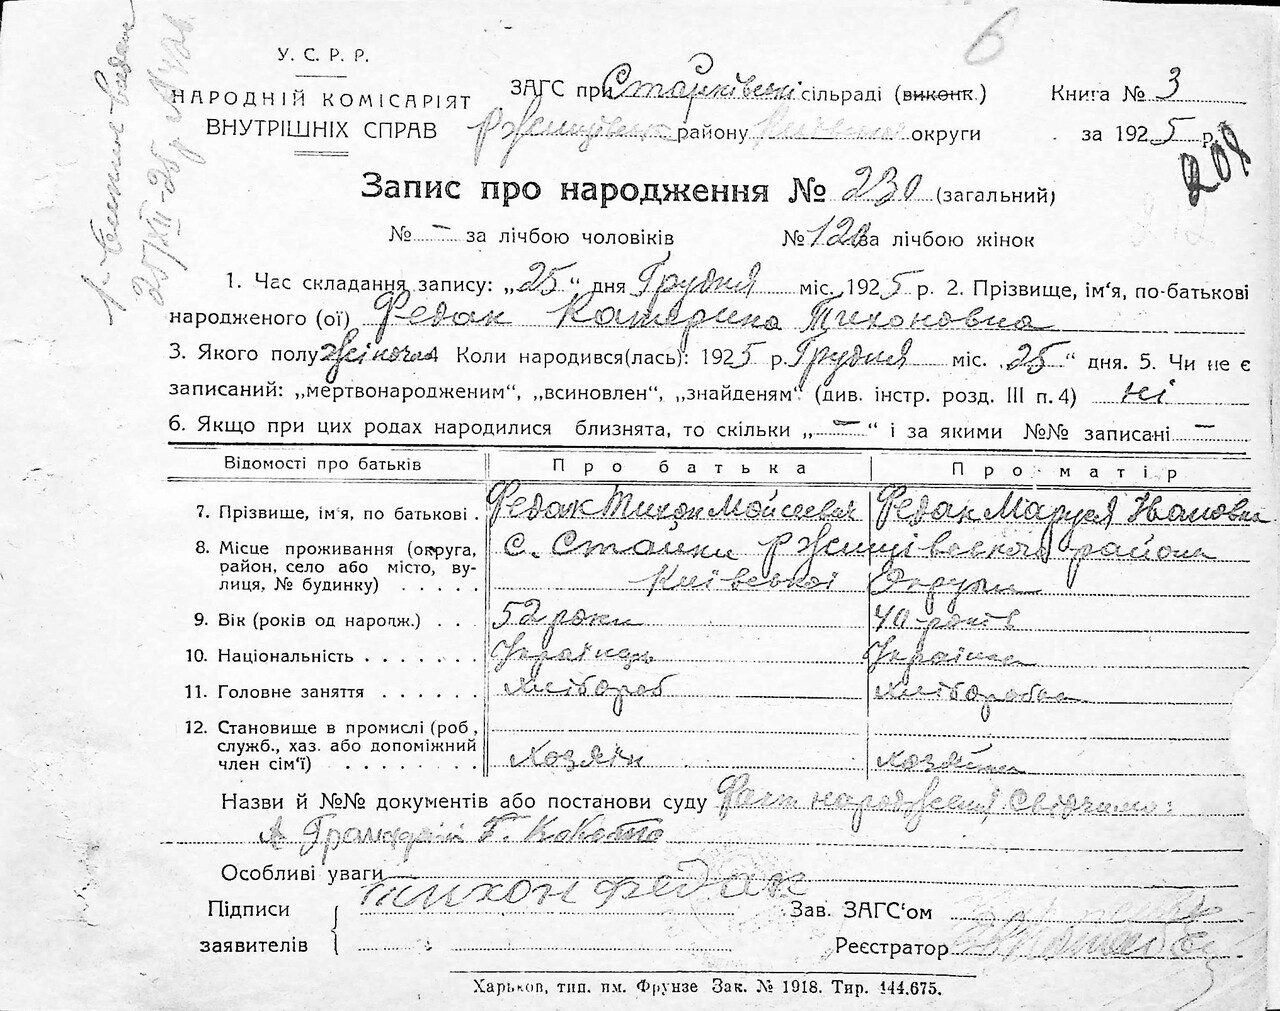 6
У. С. Р. Р.
НАРОДНІЙ КОМІСАРІЯТ
ВНУТРІШНІХ СПРАВ
ЗАГС при Стайківські сільраді (виконк.) Книга № 3
Ржищівськ району округи за 1925 р.
208
Запис про народження № 230 (загальний)
№ – за лічбою чоловіків № 120 за лічбою жінок
25/XII-25р
1. Час складання запису: „25“ дня Грудня міс. 1925 р. 2. Прізвище, ім'я, по-батькові
народженого (ої) Федак Катерина Тихоновна
3. Якого полу жіноча 4 Коли народився(лась): 1925 р. Грудня міс. „25“ дня. 5. Чи не є
записаний: „мертвонародженим“, „всиновлен“, „знайденям“ (див. інстр. розд. III п. 4) ні
6. Якщо при цих родах народилися близнята, то скільки „–“ і за якими №№ записані –
Відомості про батьків Про батька Про матір
7. Прізвище, ім'я, по батькові . Федак Тихон Мойсеевич Федак Маруся Ивановна
8. Місце проживання (округа, с. Стайки Ржищівського району
район, село або місто, ву-
лиця, № будинку) . . . . . Київської Округи
9. Вік (років од народж.) . . 52 роки 40 років
10. Національність . . . . . . . Українець Українка
11. Головне заняття . . . . . . хлібороб хлібороб
12. Становище в промислі (роб,
служб., хаз. або допоміжний
член сім'ї) . . . . . . . . хозяін хозяйка
Назви й №№ документів або постанови суду Факт народження свідчили:
Г.
Особливі уваги
Підписи Тихон Федак Зав. ЗАГС'ом
заявителів Реєстратор
Харьков, тип. им. Фрунзе Зак. № 1918. Тир. 144.675.